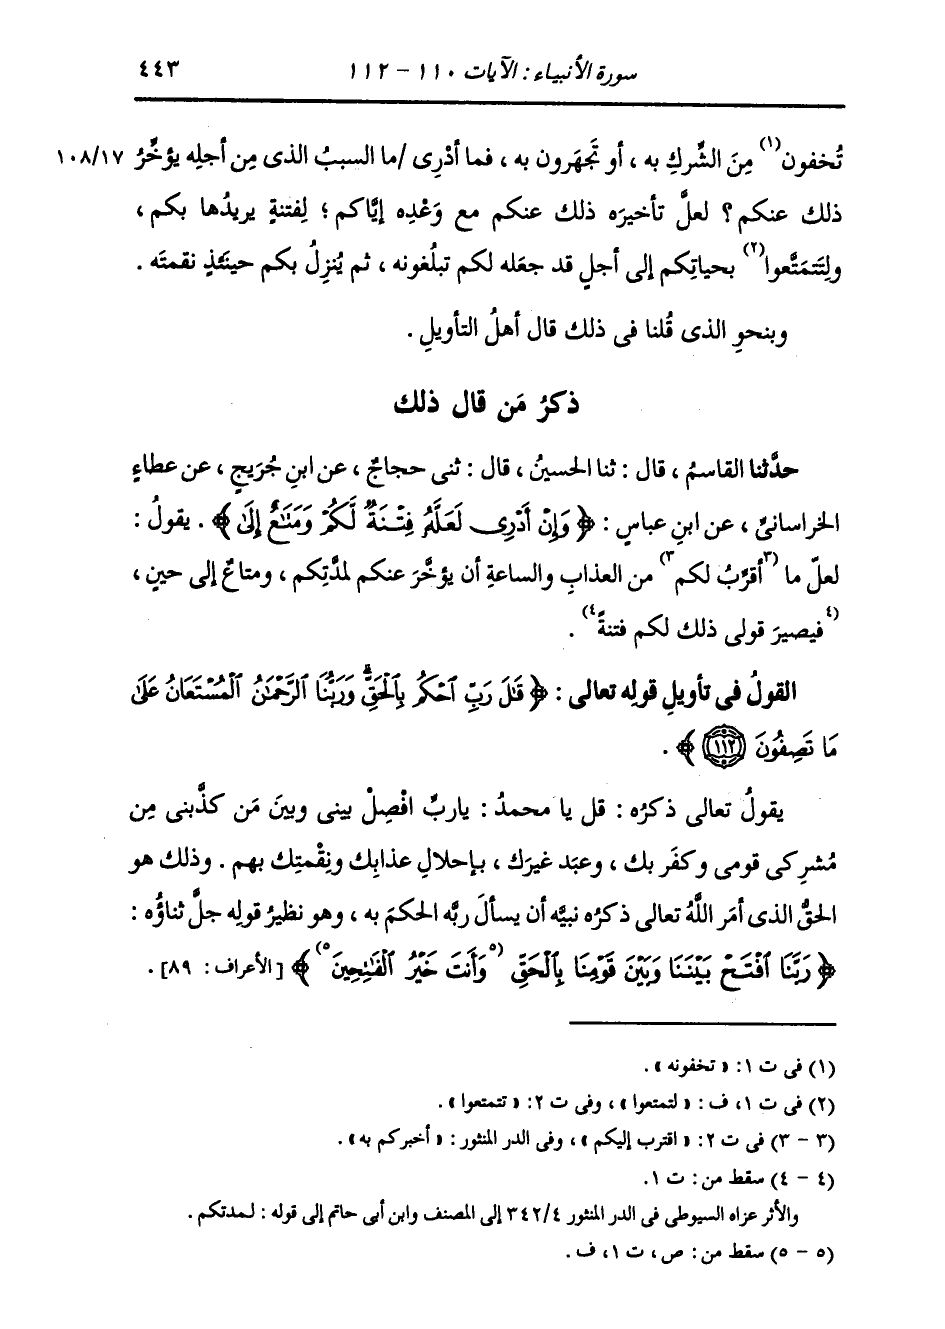 سورة الأنبياء : الآيات ١١٠ - ١١٢ ٤٤٣
تُخفون(١) مِنَ الشِّركِ به ، أو تَجْهَرون به ، فما أدْرِى /ما السببُ الذى مِن أجلِه يؤخِّرُ ١٠٨/١٧
ذلك عنكم ؟ لعلَّ تأخيرَه ذلك عنكم مع وَعْدِه إيَّاكم ؛ لِفتنةٍ يريدُها بكم ،
ولِتَتمَتَّعوا(٢) بحياتِكم إلى أجلٍ قد جعَله لكم تبلُغونه ، ثم يُنزِلُ بكم حينَئذٍ نقمتَه .
وبنحوِ الذى قُلنا فى ذلك قال أهلُ التأويلِ .
ذكرُ مَن قال ذلك
حدَّثنا القاسمُ ، قال : ثنا الحسينُ ، قال : ثنى حجاجٌ ، عن ابنِ جُرَيجٍ ، عن عطاءٍ
الخراسانىِّ ، عن ابنِ عباسٍ : ﴿ وَإِنْ أَدْرِى لَعَلَّهُ فِتْنَةٌ لَّكُمْ وَمَتَٰعٌ إِلَىٰ ﴾ . يقولُ :
لعلّ ما (٣أقرِّبُ لكم٣) من العذابِ والساعةِ أن يؤخَّرَ عنكم لمدَّتِكم ، ومتاعٌ إلى حينٍ ،
(٤فيصيرَ قولى ذلك لكم فتنةً٤) .
القولُ فى تأويلِ قولِه تعالى : ﴿ قَٰلَ رَبِّ ٱحْكُم بِٱلْحَقِّ ۗ وَرَبُّنَا ٱلرَّحْمَٰنُ ٱلْمُسْتَعَانُ عَلَىٰ
مَا تَصِفُونَ ١١٢ ﴾ .
يقولُ تعالى ذكرُه : قل يا محمدُ : ياربِّ افْصِلْ بينى وبينَ مَن كذَّبنى مِن
مُشركِى قومى وكفَر بك ، وعبَد غيرَك ، بإحلالِ عذابِك ونِقْمتِك بهم . وذلك هو
الحقُّ الذى أمَر اللَّهُ تعالى ذكرُه نبيَّه أن يسألَ ربَّه الحكمَ به ، وهو نظيرُ قولِه جلَّ ثناؤُه :
﴿ رَبَّنَا ٱفْتَحْ بَيْنَنَا وَبَيْنَ قَوْمِنَا بِٱلْحَقِّ (٥وَأَنتَ خَيْرُ ٱلْفَٰتِحِينَ٥) ﴾ [الأعراف : ٨٩] .
(١) فى ت ١: « تخفونه » .
(٢) فى ت ١، ف : « لتمتعوا » ، وفى ت ٢: « تتمتعوا » .
(٣ - ٣) فى ت ٢: « اقترب إليكم » ، وفى الدر المنثور : « أخبركم به » .
(٤ - ٤) سقط من : ت ١.
والأثر عزاه السيوطى فى الدر المنثور ٣٤٢/٤ إلى المصنف وابن أبى حاتم إلى قوله : لمدتكم .
(٥ - ٥) سقط من : ص ، ت ١، ف .